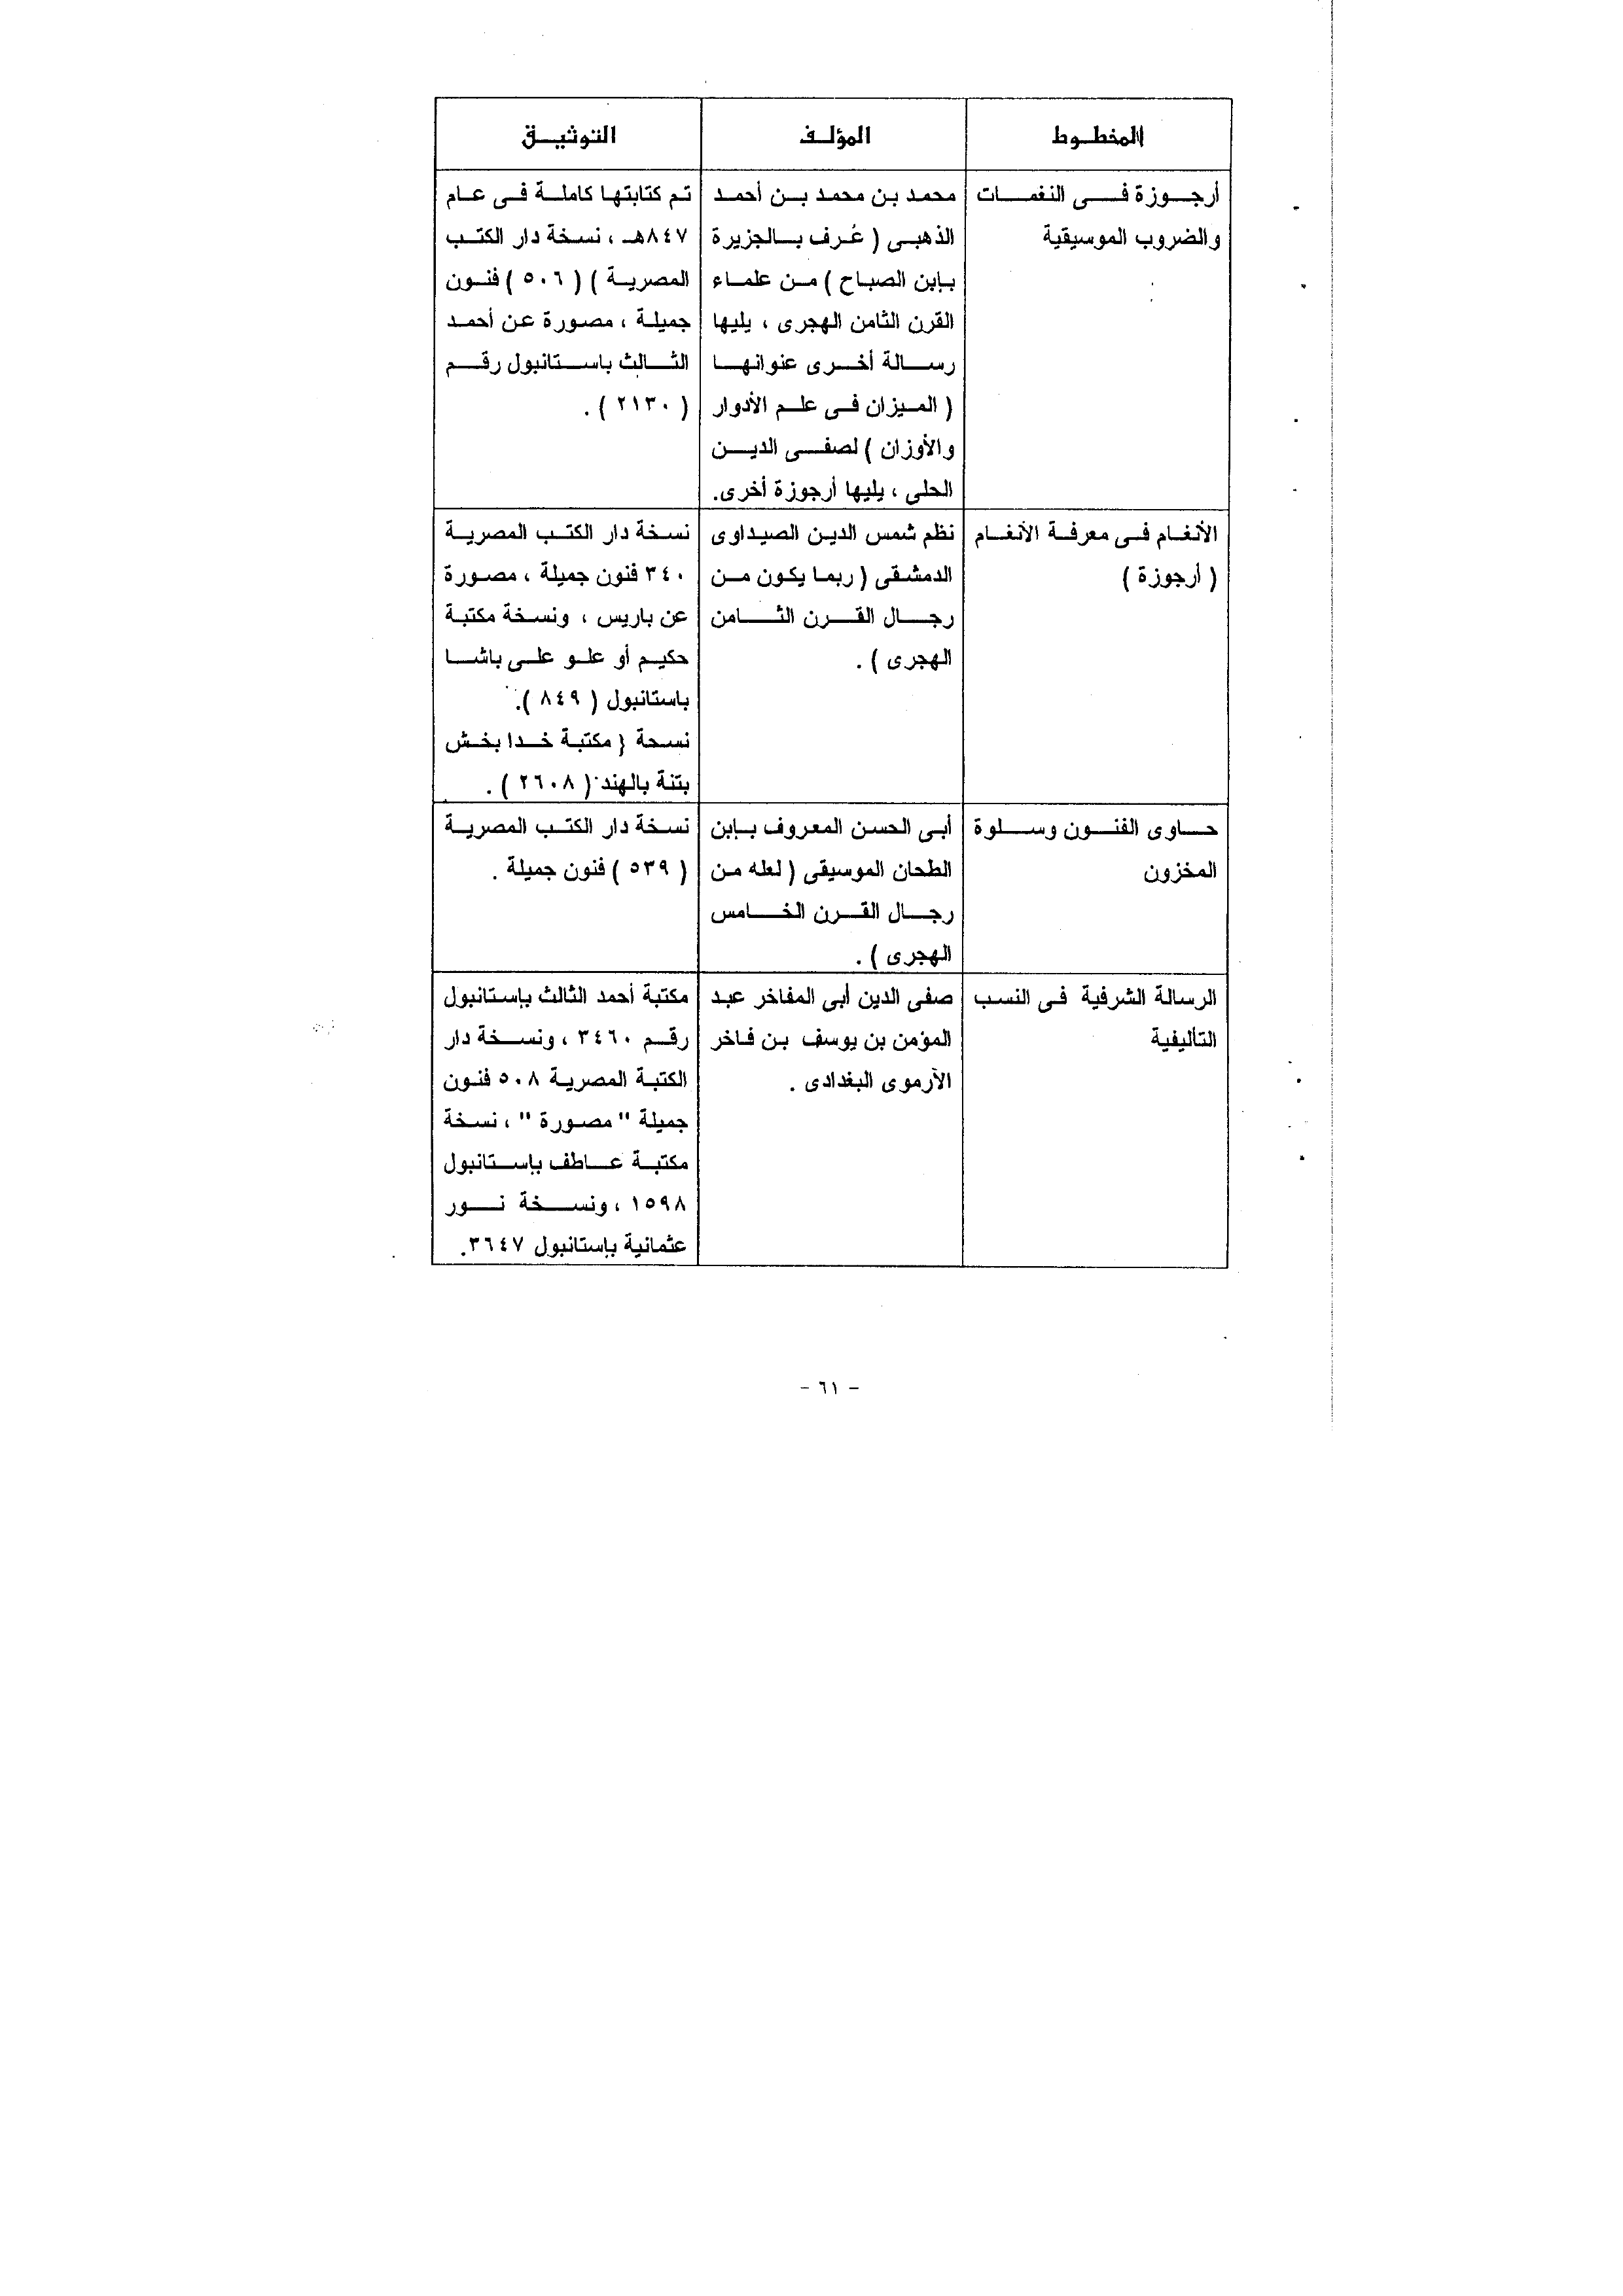 المخطوط
المؤلف
التوثيق
أرجوزة فى النغمات
والضروب الموسيقية
محمد بن محمد بن أحمد
الذهبى ( عُرف بالجزيرة
بإبن الصباح ) من علماء
القرن الثامن الهجرى ، يليها
رسالة أخرى عنوانها
( الميزان فى علم الأدوار
والأوزان ) لصفى الدين
الحلى ، يليها أرجوزة أخرى.
تم كتابتها كاملة فى عام
٨٤٧هـ ، نسخة دار الكتب
المصرية ) ( ٥٠٦ ) فنون
جميلة ، مصورة عن أحمد
الثالث باستانبول رقم
( ٢١٣٠ ) .
الأنغام فى معرفة الأنغام
( أرجوزة )
نظم شمس الدين الصيداوى
الدمشقى ( ربما يكون من
رجال القرن الثامن
الهجرى ) .
نسخة دار الكتب المصرية
٣٤٠ فنون جميلة ، مصورة
عن باريس ، ونسخة مكتبة
حكيم أو علو على باشا
باستانبول ( ٨٤٩ ).
نسحة { مكتبة خدا بخش
بتنة بالهند ( ٢٦٠٨ ) .
حاوى الفنون وسلوة
المخزون
أبى الحسن المعروف بإبن
الطحان الموسيقى ( لعله من
رجال القرن الخامس
الهجرى ) .
نسخة دار الكتب المصرية
( ٥٣٩ ) فنون جميلة .
الرسالة الشرفية فى النسب
التأليفية
صفى الدين أبى المفاخر عبد
المؤمن بن يوسف بن فاخر
الأرموى البغدادى .
مكتبة أحمد الثالث بإستانبول
رقم ٣٤٦٠ ، ونسخة دار
الكتبة المصرية ٥٠٨ فنون
جميلة " مصورة " ، نسخة
مكتبة عاطف بإستانبول
١٥٩٨ ، ونسخة نور
عثمانية بإستانبول ٣٦٤٧.
- ٦١ -